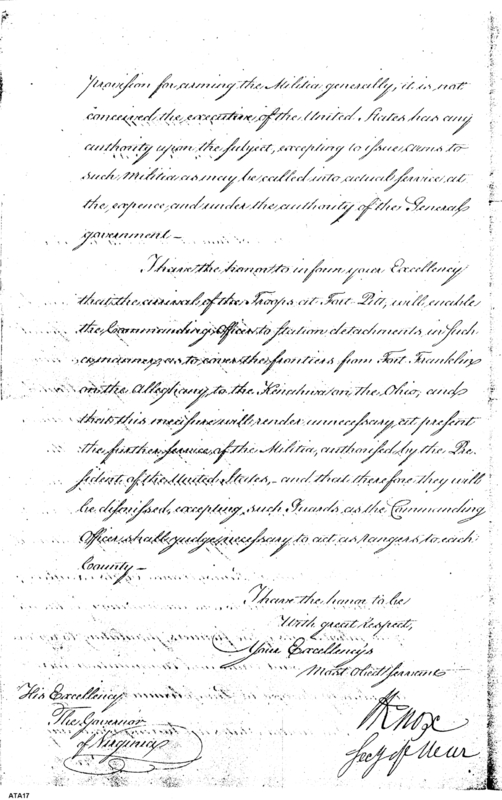 provision for arming the Militia generally, it is not
conceived the executive of the United States has any
authority upon the subject, excepting to issue arms to
such Militia as may be called into actual service at
the expence, and under the authority of the General
government —
I have the honor to inform your Excellency
that the arrival of the Troops at Fort Pitt, will enable
the Commanding Officer to station detachments in such
a manner, as to cover the frontiers from Fort Franklin
on the Alleghany to the Kenahwa on the Ohio, and
that this measure will render unnecessary at present
the further service of the Militia, authorised by the Pre-
sident of the United States, – and that therefore they will
be dismissed, excepting such Guards as the Commanding
Officer shall judge necessary to act as rangers to each
County —
I have the honor to be
With great respect,
Your Excellencys
Most Obedt Servant
HKnox
Secy of War
His Excellency
The Governor
of Virginia
ATA17